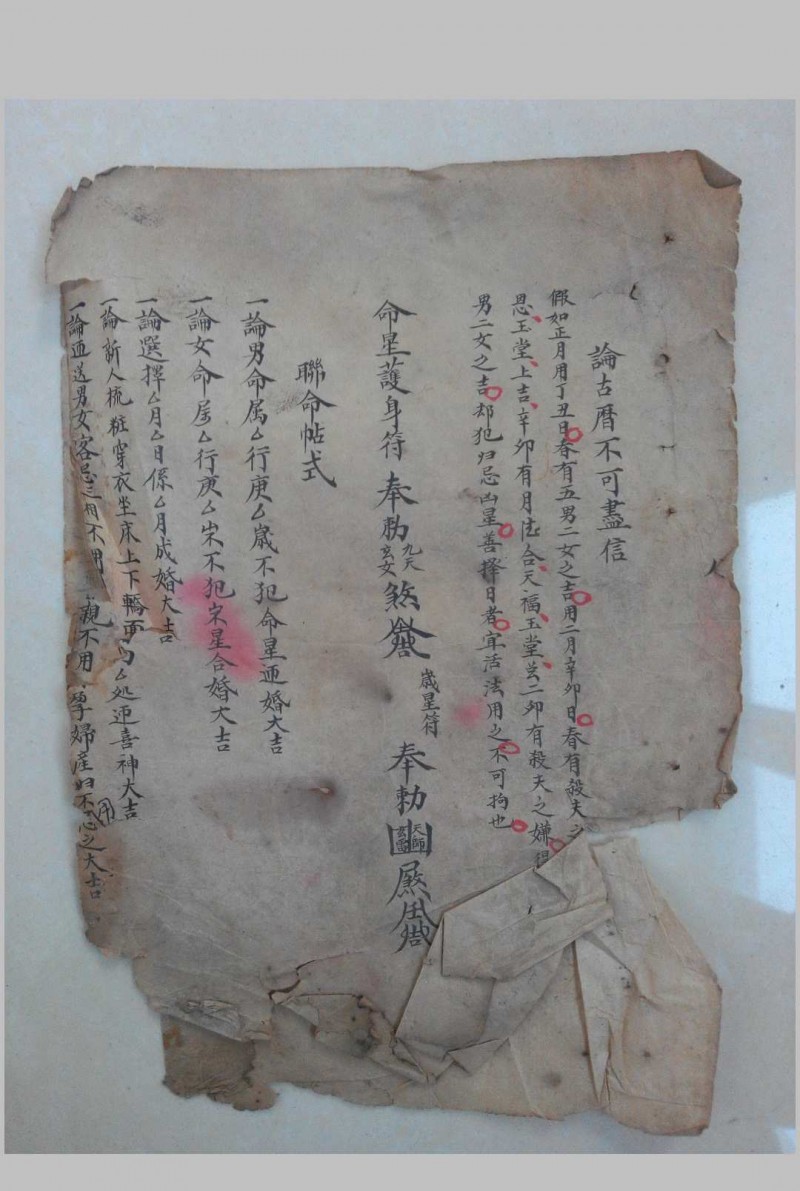 論古曆不可盡信
假如正月用丁丑日春有五男二女之吉用二月辛卯日春有殺夫之
恩玉堂上吉辛卯有月德合天福玉堂
二卯有殺夫之嫌
男二女之吉却犯归忌凶星善擇日者宜活法用之不可拘也
命星護身符 奉勅 九天玄女 煞
歲星符 奉勅
聯命帖式
一論男命属厶行庚厶歲不犯命星迊婚大吉
一論女命属厶行庚厶歲不犯宋星合婚大吉
一論選擇厶月厶日係厶月成婚大吉
一論新人梳粧穿衣坐床上下轎面向厶処迊喜神大吉
一論迊送男女客忌三相不用
親不用孕婦産妇不用忌之大吉